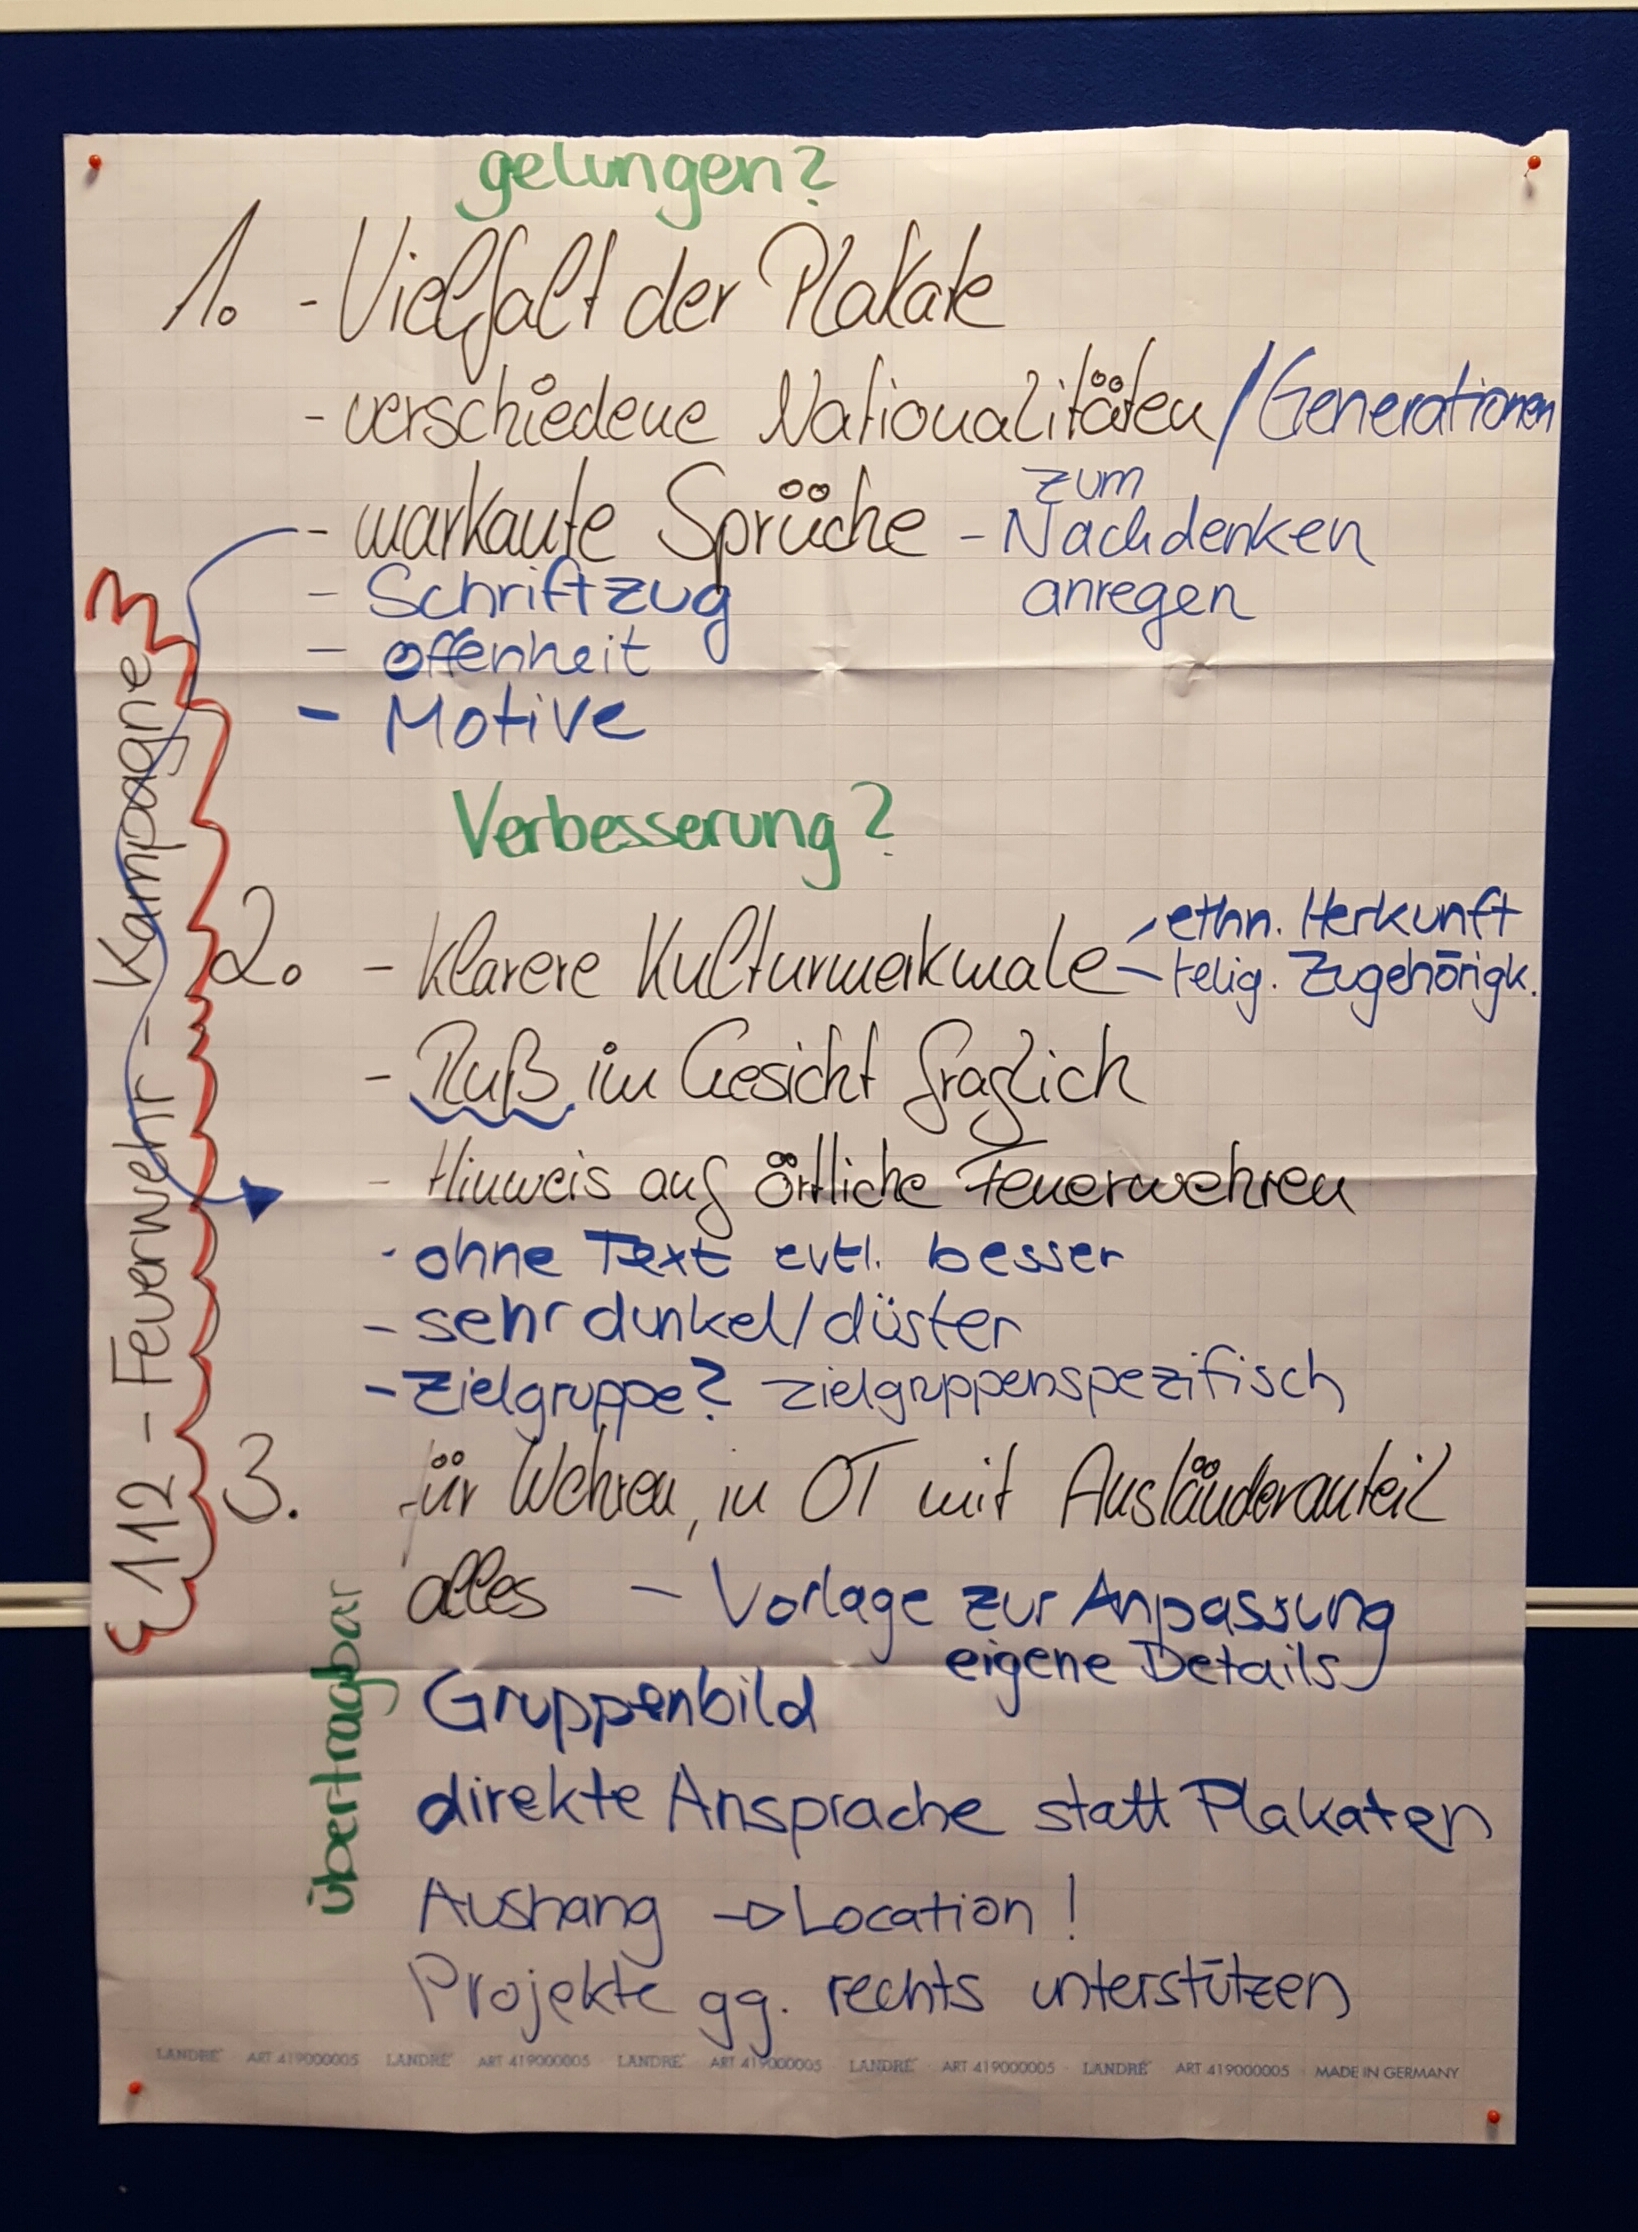 gelungen?
1. - Vielfalt der Plakate
- verschiedene Nationalitäten / Generationen
- markante Sprüche - zum Nachdenken anregen
- Schriftzug
- offenheit
- Motive
112 - Feuerwehr - Kampagne
Verbesserung?
2. - klarere Kulturmerkmale - ethn. Herkunft
- relig. Zugehörigk.
- Ruß im Gesicht fraglich
- Hinweis auf örtliche Feuerwehren
- ohne Text evtl. besser
- sehr dunkel/düster
- Zielgruppe? zielgruppenspezifisch
übertragbar
3. für Wehren, in OT mit Ausländeranteil
alles - Vorlage zur Anpassung
eigene Details
Gruppenbild
direkte Ansprache statt Plakaten
Aushang → Location!
Projekte gg. rechts unterstützen
LANDRÉ ART 419000005 LANDRÉ ART 419000005 LANDRÉ ART 419000005 LANDRÉ ART 419000005 LANDRÉ ART 419000005 MADE IN GERMANY